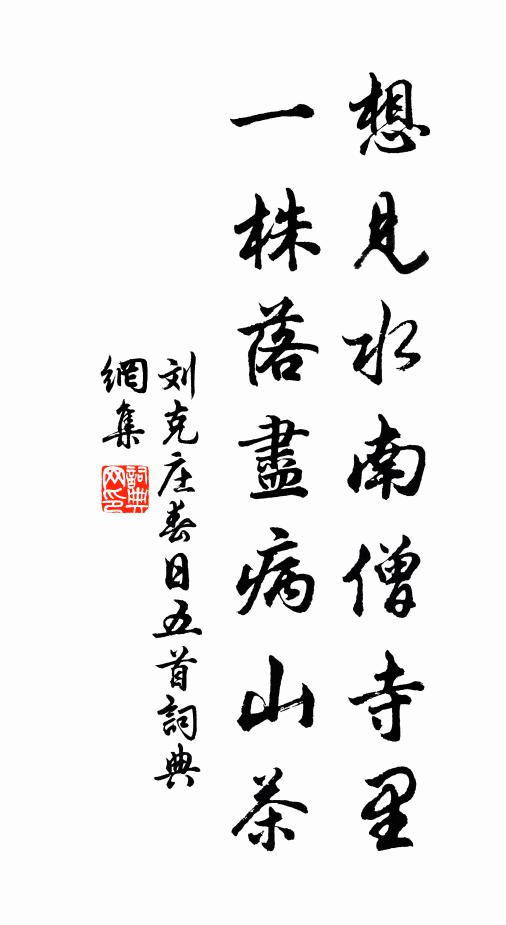 想見水南僧寺里
一株落盡病山茶
刘克庄春日五首詞典
網集
詞典網印